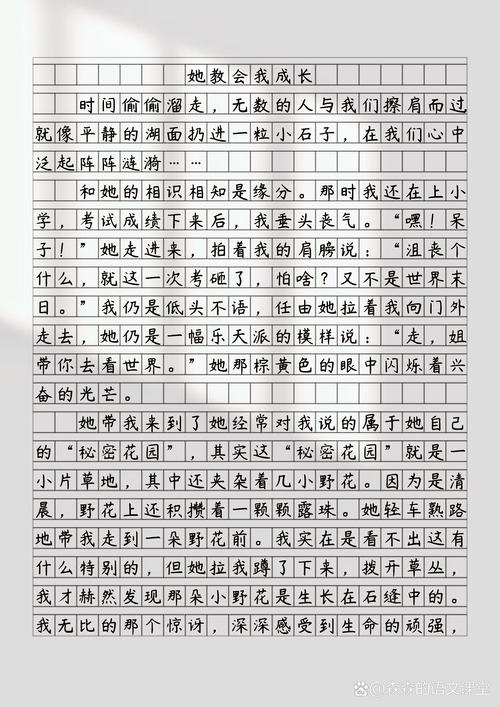 她教会我成长
时间偷偷溜走，无数的人与我们擦肩而过
就像平静的湖面扔进一粒小石子，在我们心中
泛起阵阵涟漪……
和她的相识相知是缘分。那时我还在上小
学，考试成绩下来后，我垂头丧气。“嘿！呆
子！”她走进来，拍着我的肩膀说：“沮丧个
什么，就这一次考砸了，怕啥？又不是世界末
日。”我仍是低头不语，任由她拉着我向门外
走去，她仍是一幅乐天派的模样说：“走，姐
带你去看世界。”她那棕黄色的眼中闪烁着兴
奋的光芒。
她带我来到了她经常对我说的属于她自己
的“秘密花园”，其实这“秘密花园”就是一
小片草地，其中还夹杂着几小野花。因为是清
晨，野花上还积攒着一颗颗露珠。她轻车熟路
地带我走到一朵野花前。我实在是看不出这有
什么特别的，但她拉我蹲了下来，拨开草丛，
我才赫然发现那朵小野花是生长在石缝中的。
我无比的那个惊讶，深深感受到生命的顽强，
森森的语文课堂